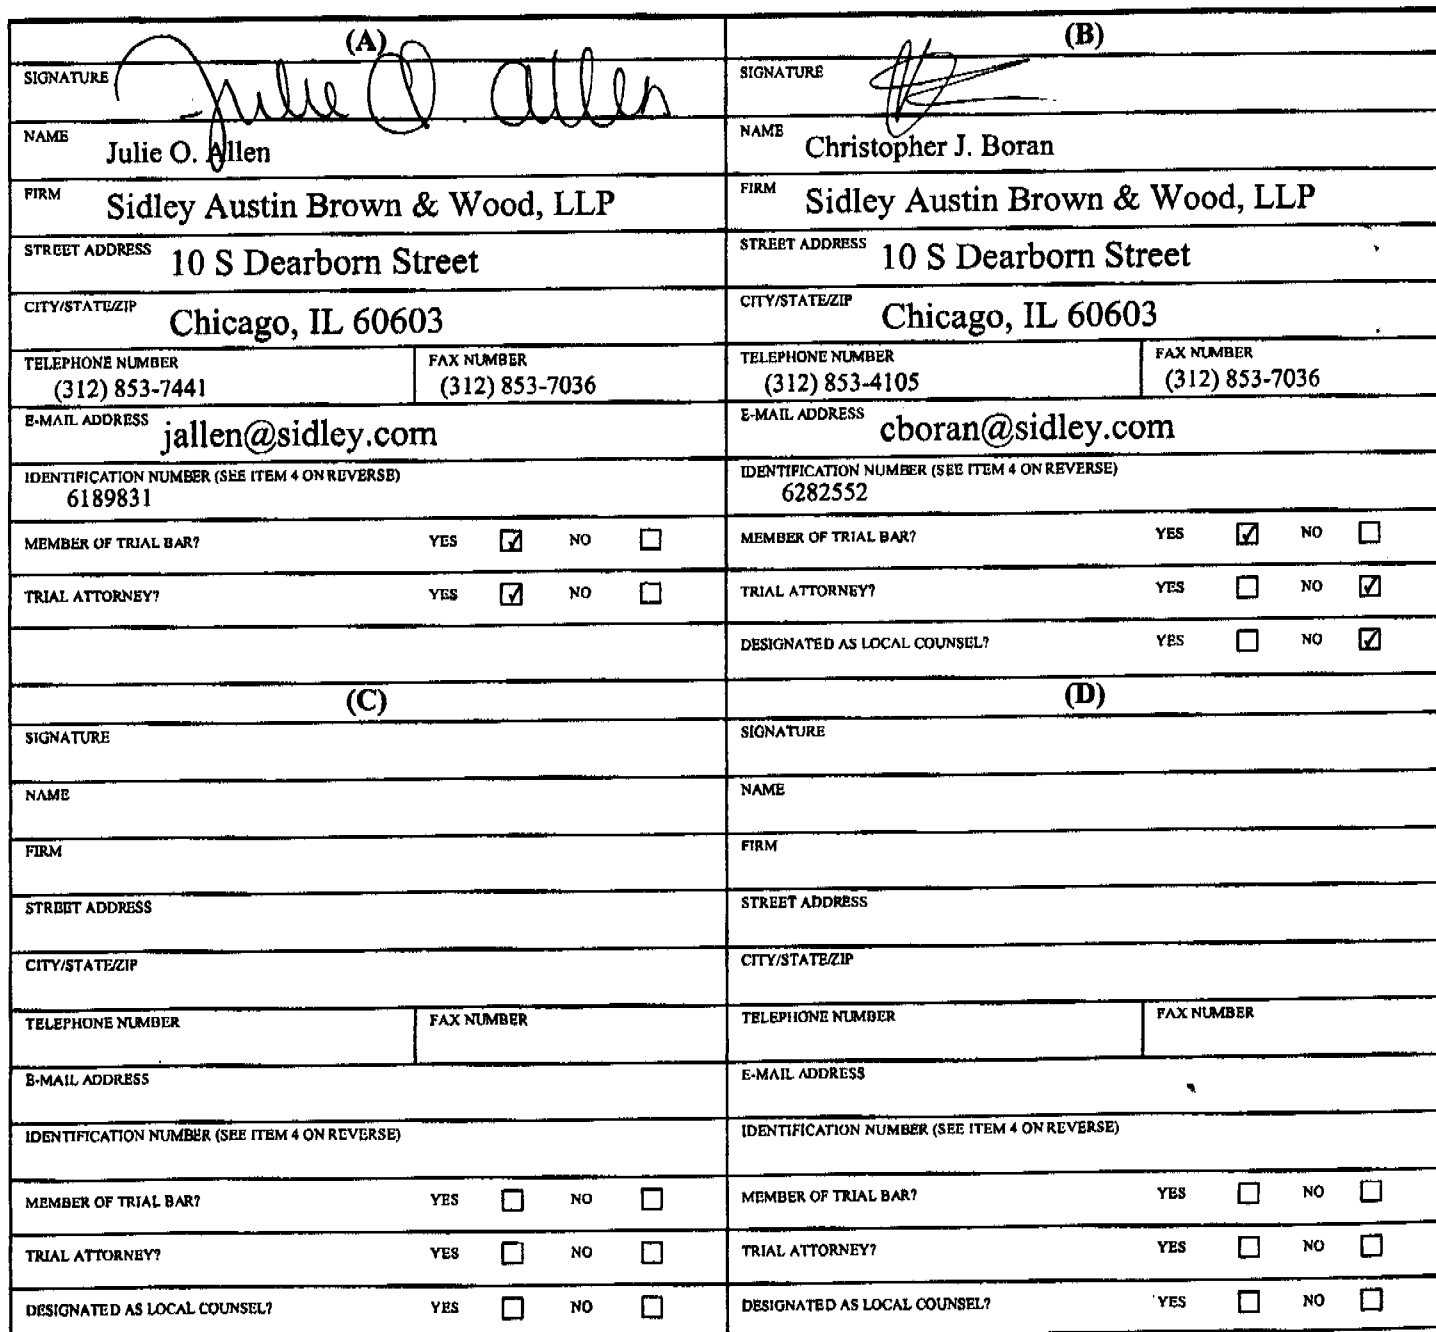 (A)
SIGNATURE Julie O. Allen
NAME Julie O. Allen
FIRM Sidley Austin Brown & Wood, LLP
STREET ADDRESS 10 S Dearborn Street
CITY/STATE/ZIP Chicago, IL 60603
TELEPHONE NUMBER FAX NUMBER
(312) 853-7441 (312) 853-7036
E-MAIL ADDRESS jallen@sidley.com
IDENTIFICATION NUMBER (SEE ITEM 4 ON REVERSE)
6189831
MEMBER OF TRIAL BAR? YES ☑ NO ☐
TRIAL ATTORNEY? YES ☑ NO ☐
(B)
SIGNATURE
NAME Christopher J. Boran
FIRM Sidley Austin Brown & Wood, LLP
STREET ADDRESS 10 S Dearborn Street
CITY/STATE/ZIP Chicago, IL 60603
TELEPHONE NUMBER FAX NUMBER
(312) 853-4105 (312) 853-7036
E-MAIL ADDRESS cboran@sidley.com
IDENTIFICATION NUMBER (SEE ITEM 4 ON REVERSE)
6282552
MEMBER OF TRIAL BAR? YES ☑ NO ☐
TRIAL ATTORNEY? YES ☐ NO ☑
DESIGNATED AS LOCAL COUNSEL? YES ☐ NO ☑
(C)
SIGNATURE
NAME
FIRM
STREET ADDRESS
CITY/STATE/ZIP
TELEPHONE NUMBER FAX NUMBER
E-MAIL ADDRESS
IDENTIFICATION NUMBER (SEE ITEM 4 ON REVERSE)
MEMBER OF TRIAL BAR? YES ☐ NO ☐
TRIAL ATTORNEY? YES ☐ NO ☐
DESIGNATED AS LOCAL COUNSEL? YES ☐ NO ☐
(D)
SIGNATURE
NAME
FIRM
STREET ADDRESS
CITY/STATE/ZIP
TELEPHONE NUMBER FAX NUMBER
E-MAIL ADDRESS
IDENTIFICATION NUMBER (SEE ITEM 4 ON REVERSE)
MEMBER OF TRIAL BAR? YES ☐ NO ☐
TRIAL ATTORNEY? YES ☐ NO ☐
DESIGNATED AS LOCAL COUNSEL? YES ☐ NO ☐